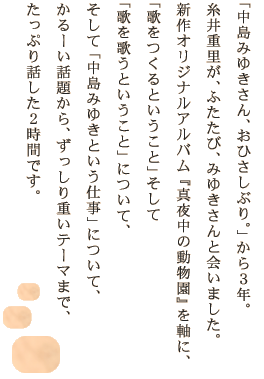 「中島みゆきさん、おひさしぶり。」から３年。
糸井重里が、ふたたび、みゆきさんと会いました。
新作オリジナルアルバム『真夜中の動物園』を軸に、
「歌をつくるということ」そして
「歌を歌うということ」について、
そして「中島みゆきという仕事」について、
かるーい話題から、ずっしり重いテーマまで、
たっぷり話した２時間です。